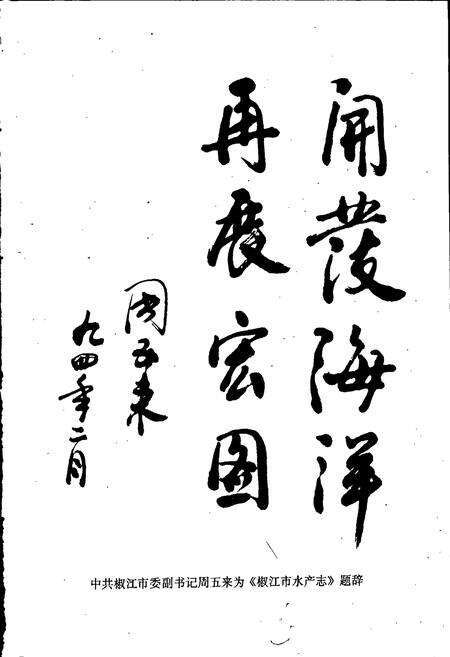 開發海洋
再展宏图
周五来
九四年二月
中共椒江市委副书记周五来为《椒江市水产志》题辞